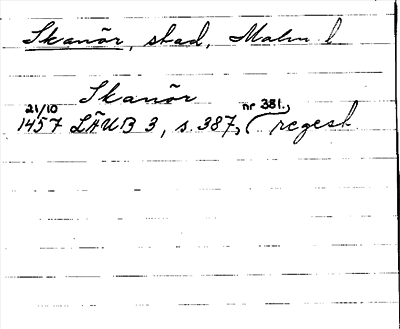 Skanör, stad, Malm l
Skanör
21/10 nr 381.,
1457 LÄUB 3, s. 387, (regest